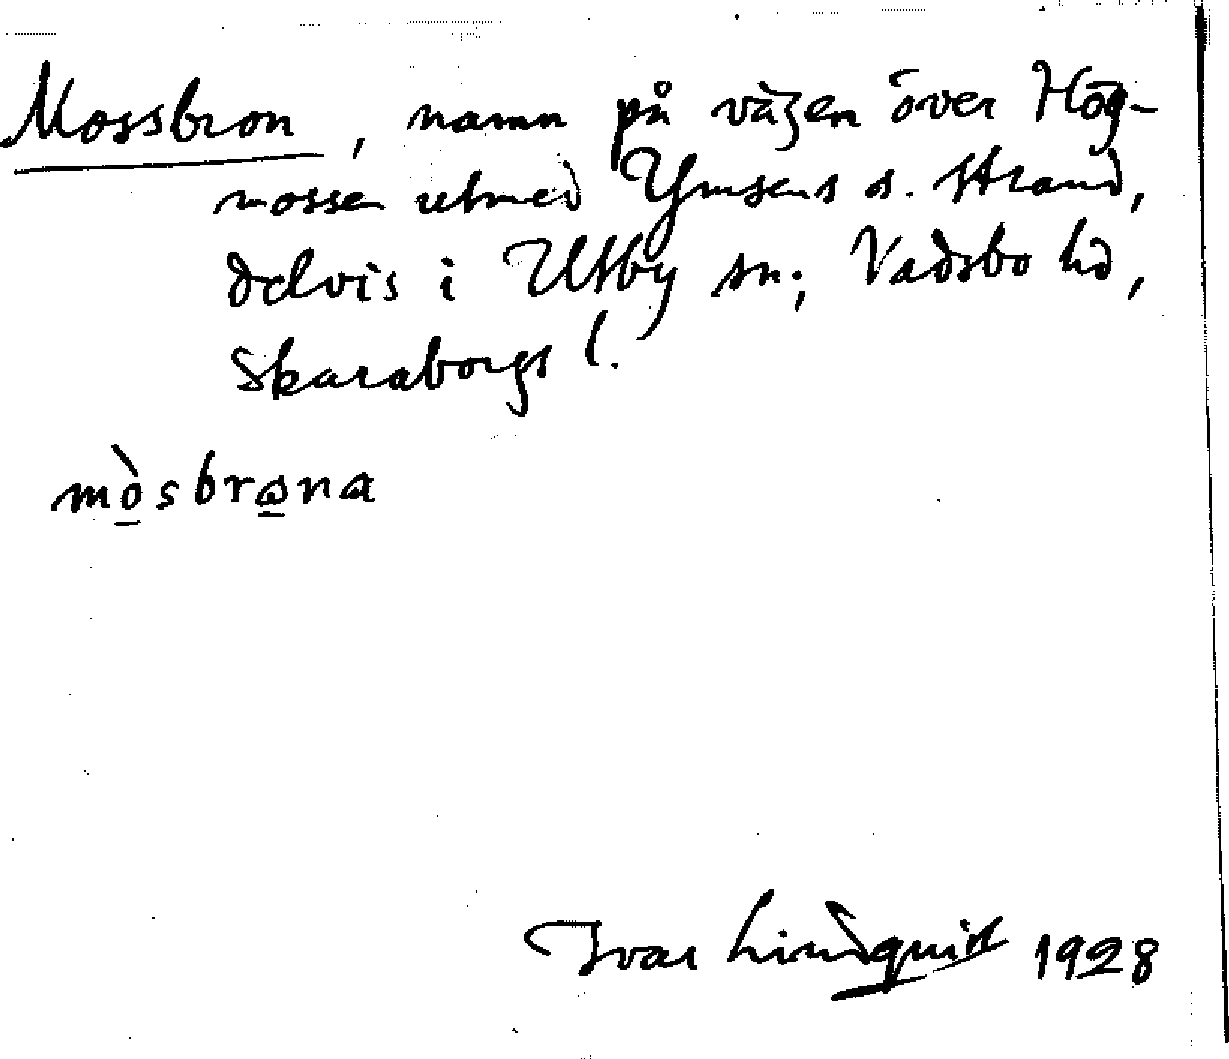 Mossbron, namn på vägen över Hög-
mossen utmed Ymsens s. strand,
delvis i Utby sn; Vadsbo hd,
Skaraborgs l.
mò̲sbrω̲na
Ivar Lindquist 1928